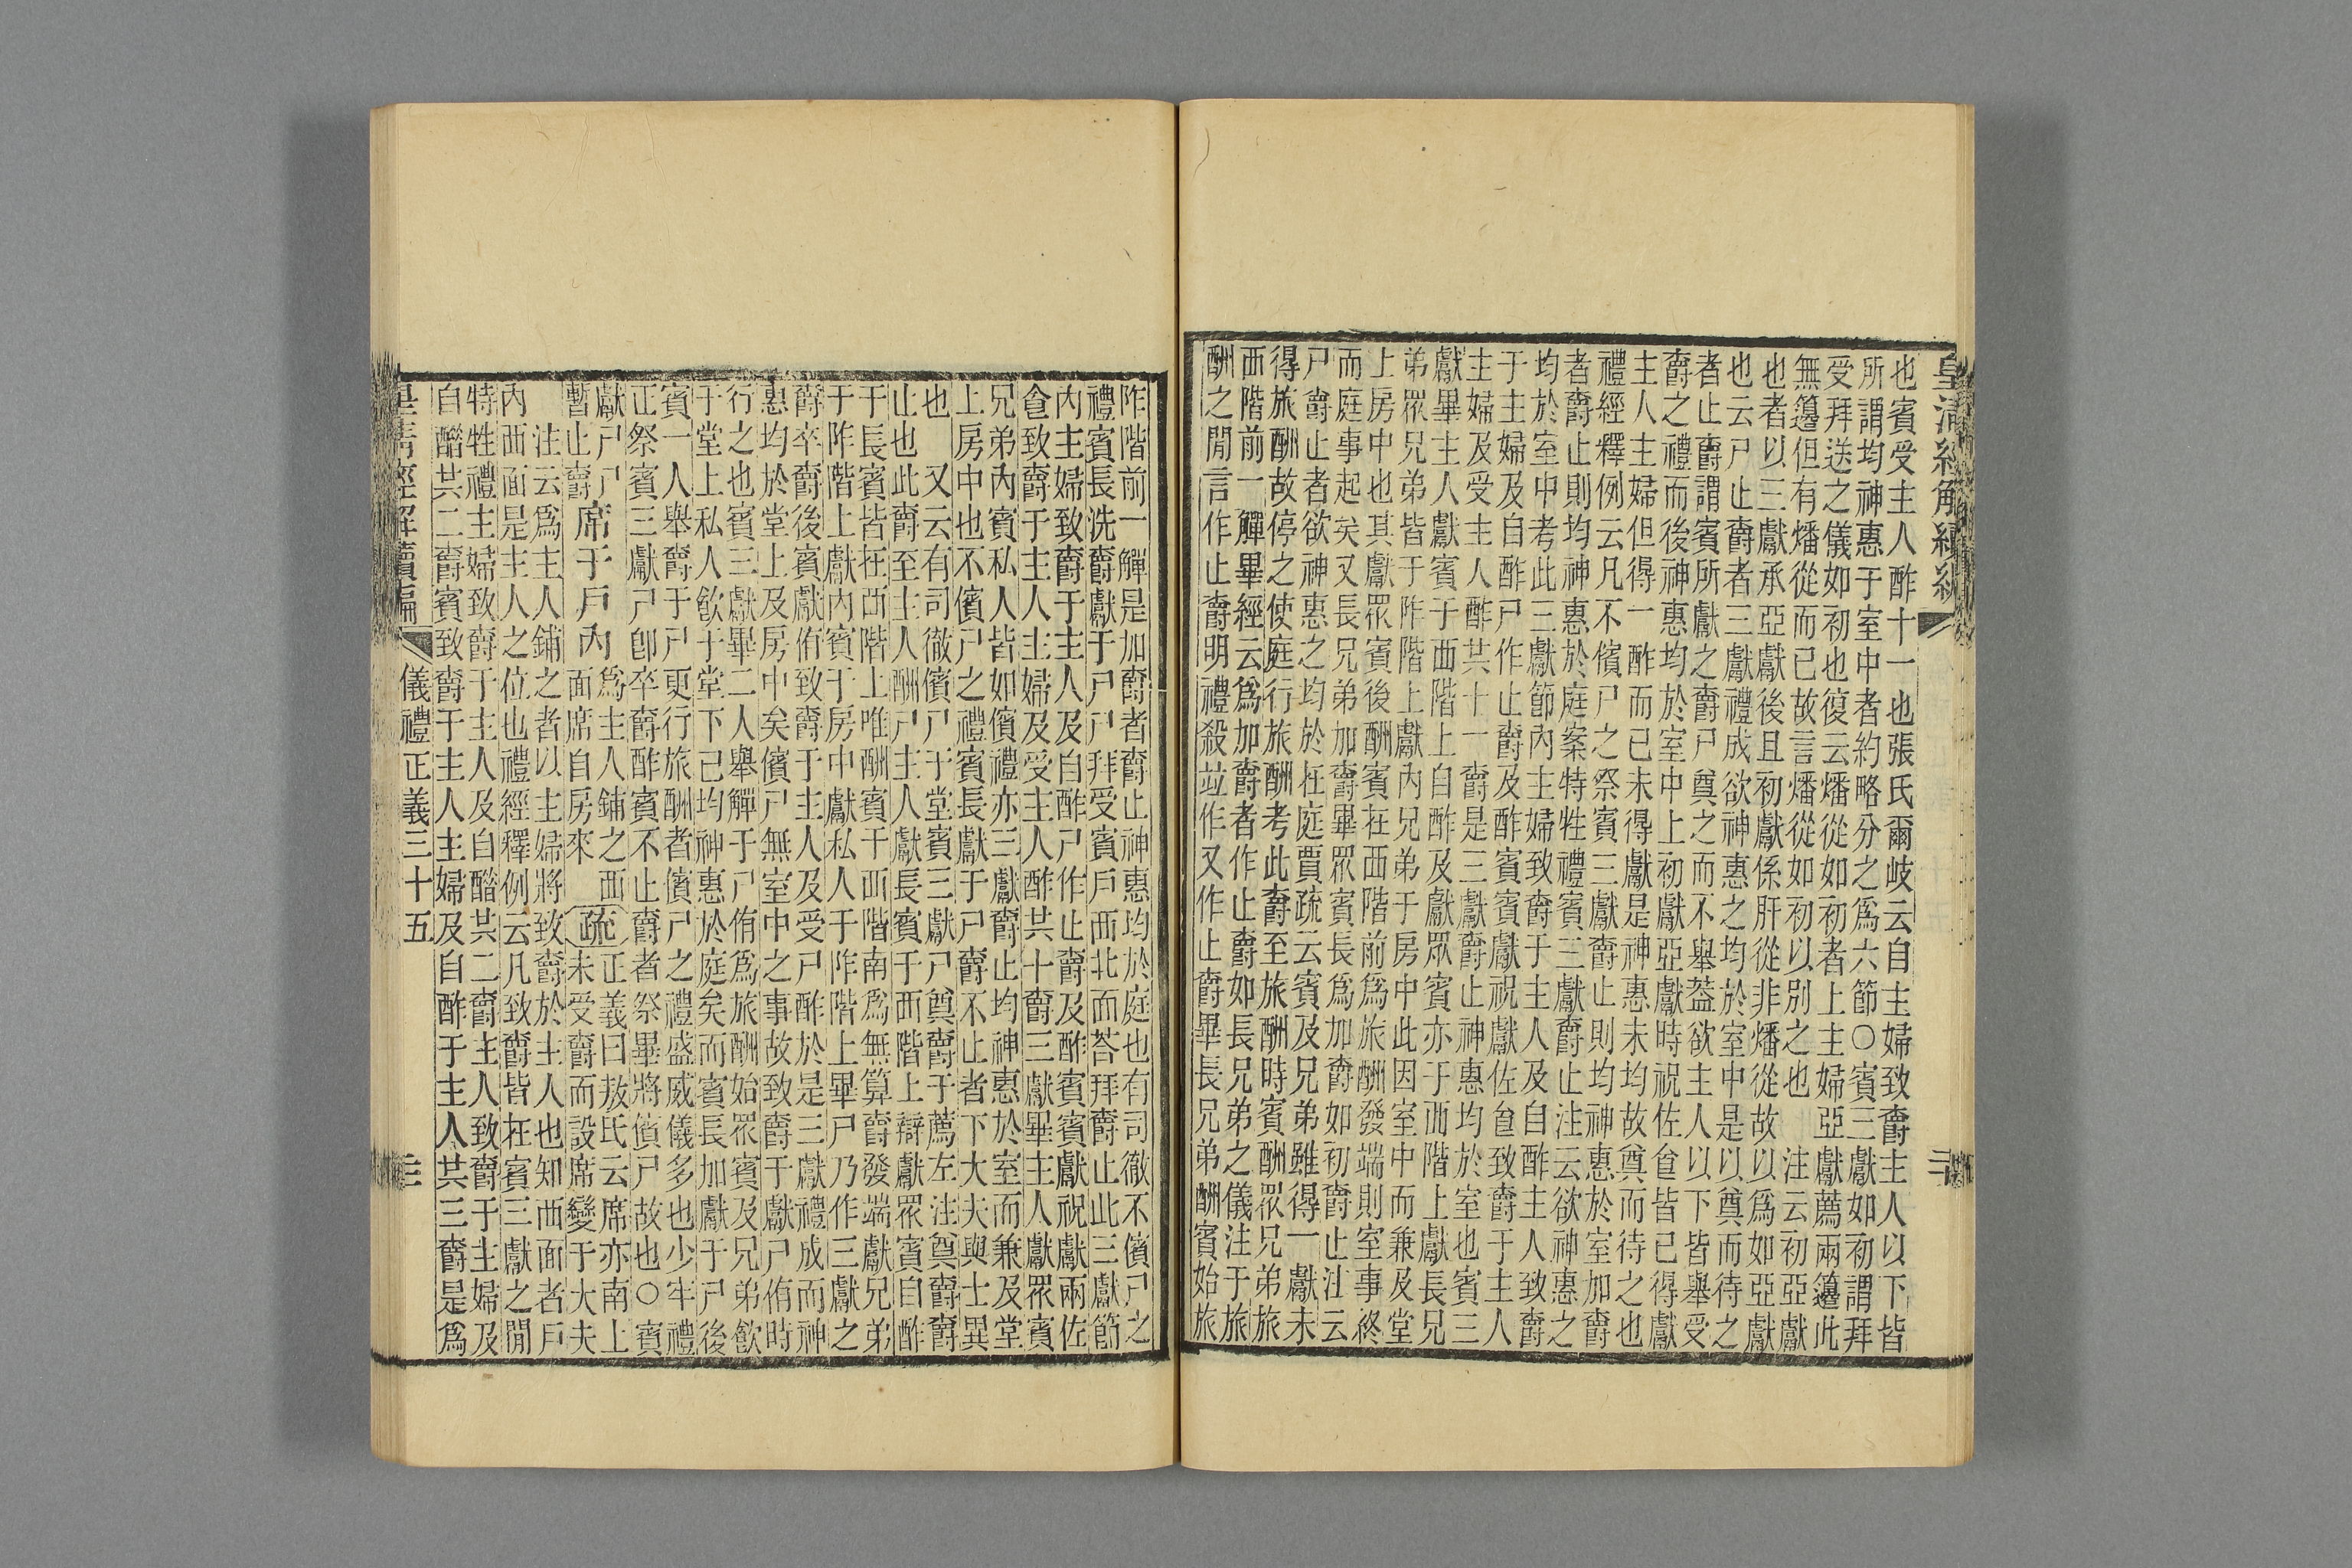 皇清經解續編
也賓受主人酢十一也張氏爾岐云自主婦致爵主人以下皆
所謂均神惠于室中者約略分之爲六節○賓三獻如初謂拜
受拜送之儀如初也復云燔從如初者上主婦亞獻薦兩籩此
無籩但有燔從而已故言燔從如初以別之也　注云初亞獻
也者以三獻承亞獻後且初獻係肝從非燔從故以爲如亞獻
也云尸止爵者三獻禮成欲神惠之均於室中是以奠而待之
者止爵謂賓所獻之爵尸奠之而不舉葢欲主人以下皆舉受
爵之禮而後神惠均於室中上初獻亞獻時祝佐食皆已得獻
主人主婦但得一酢而已未得獻是神惠未均故奠而待之也
禮經釋例云凡不儐尸之祭賓三獻爵止則均神惠於室加爵
者爵止則均神惠於庭案特牲禮賓三獻爵止注云欲神惠之
均於室中考此三獻節內主婦致爵于主人及自酢主人致爵
于主婦及自酢尸作止爵及酢賓賓獻祝獻佐食致爵于主人
主婦及受主人酢共十一爵是三獻爵止神惠均於室也賓三
獻畢主人獻賓于西階上自酢及獻眾賓亦于西階上獻長兄
弟眾兄弟皆于阼階上獻內兄弟于房中此因室中而兼及堂
上房中也其獻眾賓後酬賓在西階前爲旅酬發端則室事終
而庭事起矣又長兄弟加爵畢眾賓長爲加爵如初爵止注云
尸爵止者欲神惠之均於在庭賈疏云賓及兄弟雖得一獻未
得旅酬故停之使庭行旅酬考此爵至旅酬時賓酬眾兄弟旅
西階前一觶畢經云爲加爵者作止爵如長兄弟之儀注于旅
酬之閒言作止爵明禮殺並作又作止爵畢長兄弟酬賓始旅
阼階前一觶是加爵者爵止神惠均於庭也有司徹不儐尸之
禮賓長洗爵獻于尸尸拜受賓戶西北面荅拜爵止此三獻節
內主婦致爵于主人及自酢尸作止爵及酢賓賓獻祝獻兩佐
食致爵于主人主婦及受主人酢共十爵三獻畢主人獻眾賓
兄弟內賓私人皆如儐禮亦三獻爵止均神惠於室而兼及堂
上房中也不儐尸之禮賓長獻于尸爵不止者下大夫與士異
也　又云有司徹儐尸于堂賓三獻尸奠爵于薦左注奠爵
止也此爵至主人酬尸主人獻長賓于西階上辯獻眾賓自酢
于長賓皆在西階上唯酬賓于西階南爲無算爵發端獻兄弟
于阼階上獻內賓于房中獻私人于阼階上畢尸乃作三獻之
爵卒爵後賓獻侑致爵于主人及受尸酢於是三獻禮成而神
惠均於堂上及房中矣儐尸無室中之事故致爵于獻尸侑時
行之也賓三獻畢二人舉觶于尸侑爲旅酬始眾賓及兄弟飮
于堂上私人飮于堂下已均神惠於庭矣而賓長加獻于尸後
賓一人舉爵于尸更行旅酬者儐尸之禮盛威儀多也少牢禮
正祭賓三獻尸卽卒爵酢賓不止爵者祭畢將儐尸故也○賓
獻尸尸
暫止爵席于戶內爲主人鋪之西
面席自房來疏正義曰敖氏云席亦南上
未受爵而設席變于大夫
　注云爲主人鋪之者以主婦將致爵於主人也知西面者戶
內西面是主人之位也禮經釋例云凡致爵皆在賓三獻之閒
特牲禮主婦致爵于主人及自酳共二爵主人致爵于主婦及
自酳共二爵賓致爵于主人主婦及自酢于主人共三爵是爲
皇清經解續編　儀禮正義三十五　三